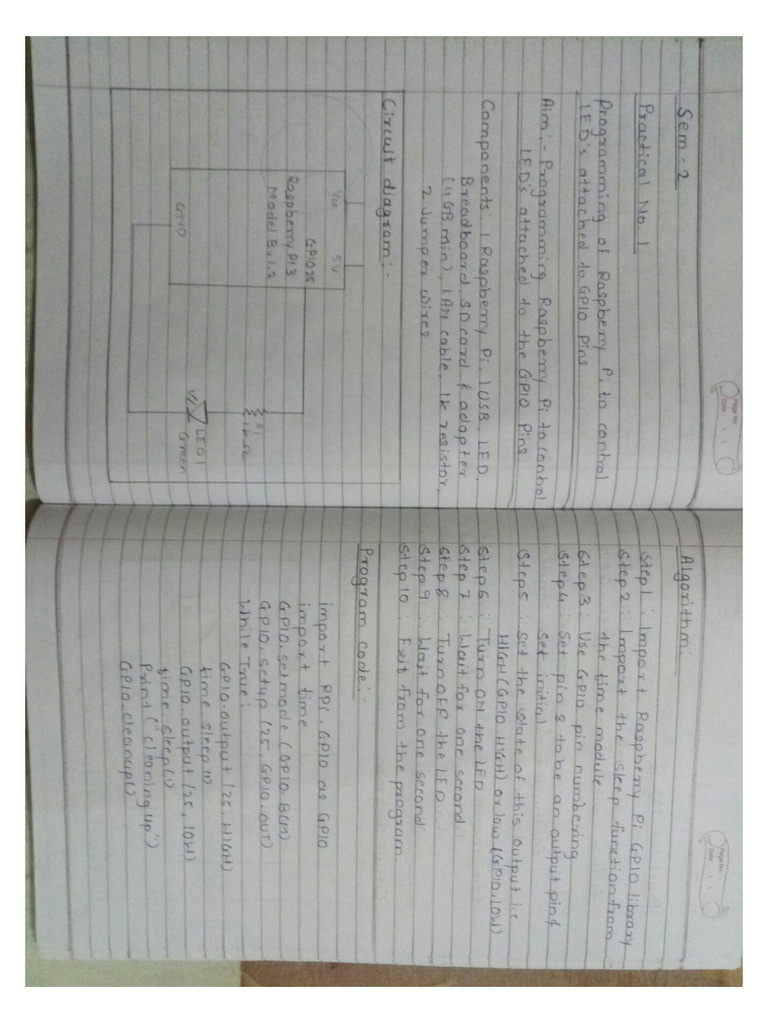 Page No:
Date:
Sem - 2
Practical No. 1
Programming of Raspberry Pi to control
LED's attached to GPIO Pins
Aim:- Programming Raspberry Pi to control
LED's attached to the GPIO Pins
Components: 1 Raspberry Pi, 1 USB, LED,
Breadboard, SD card & adapter
(4GB min), LAN cable, 1k resistor,
2 Jumper wires
Circuit diagram:-
Vcc 5V
GPIO25
Raspberry Pi 3
Model B v1.2
GND
R1
1kΩ
LED1
Green
Page No:
Date:
Algorithm:
Step1: Import Raspberry Pi GPIO library
Step2: Import the sleep function from
the time module
Step3: Use GPIO pin numbering
Step4: Set pin 8 to be an output pin &
set initial
Step5: Set the state of this output i.e
HIGH (GPIO.HIGH) or low (GPIO.LOW)
Step6: Turn ON the LED
Step 7: Wait for one second
Step 8: Turn OFF the LED
Step 9: Wait for one second
Step 10: Exit from the program
Program code:-
import RPi.GPIO as GPIO
import time
GPIO.setmode (GPIO.BCM)
GPIO.setup (25, GPIO.OUT)
While True:
GPIO.output (25, HIGH)
time.sleep(1)
GPIO.output (25, LOW)
time.sleep(1)
Print ("cleaning up")
GPIO.cleanup()